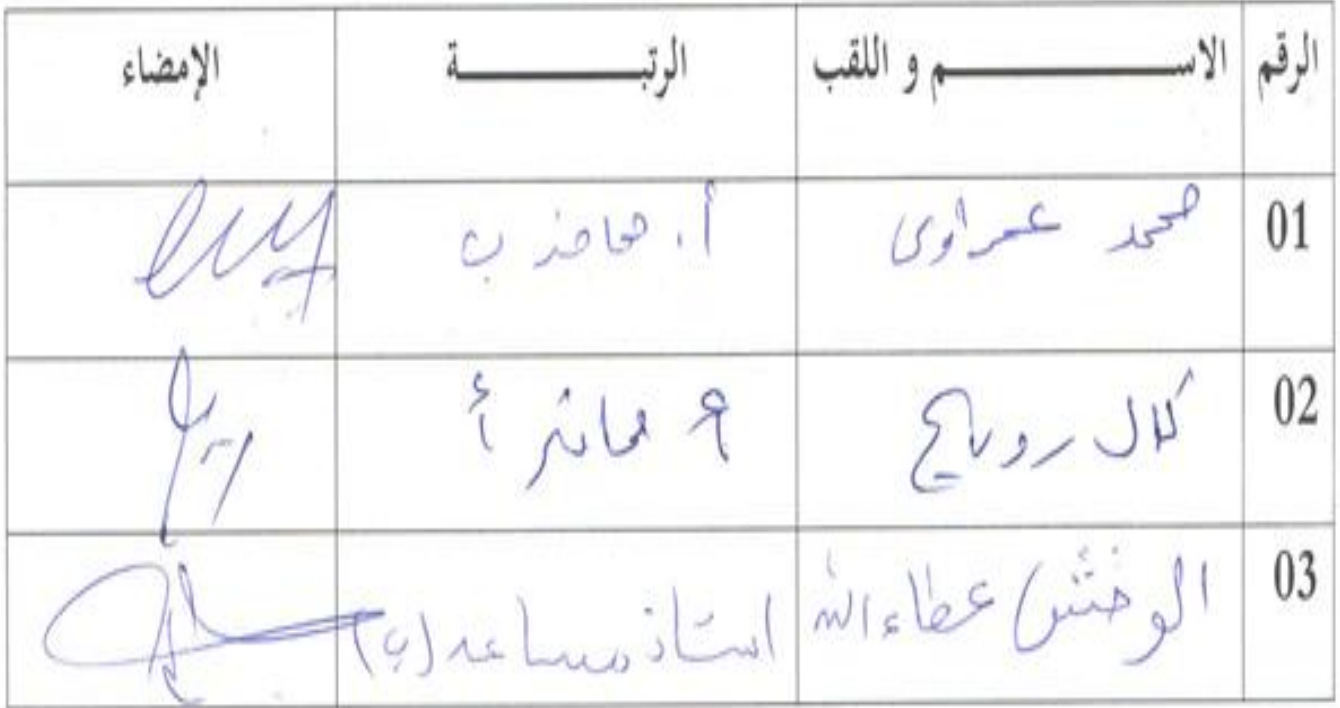 الرقم الاســـــــم و اللقب الرتبـــــــة الإمضاء
01 محمد عمراوى أ. محاضر ب
02 كلال رويلح محاضر أ
03 الوخش عطاء الله استاذ مساعد (ب)